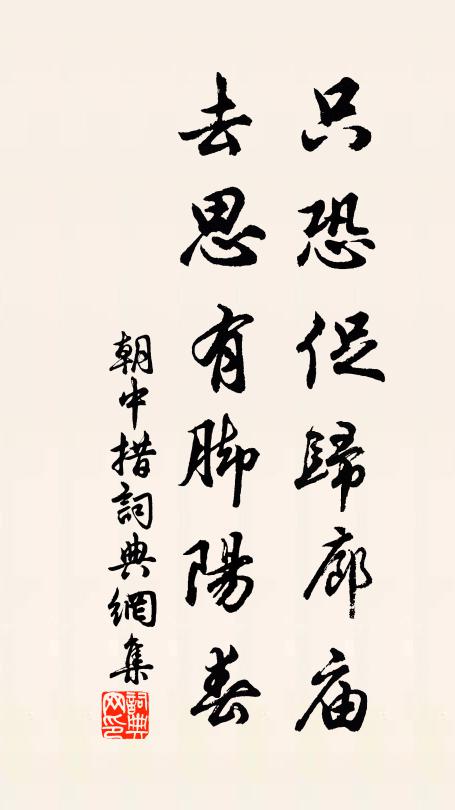 只恐促歸廊庙
去思有脚陽春
朝中措詞典網集
詞典網印